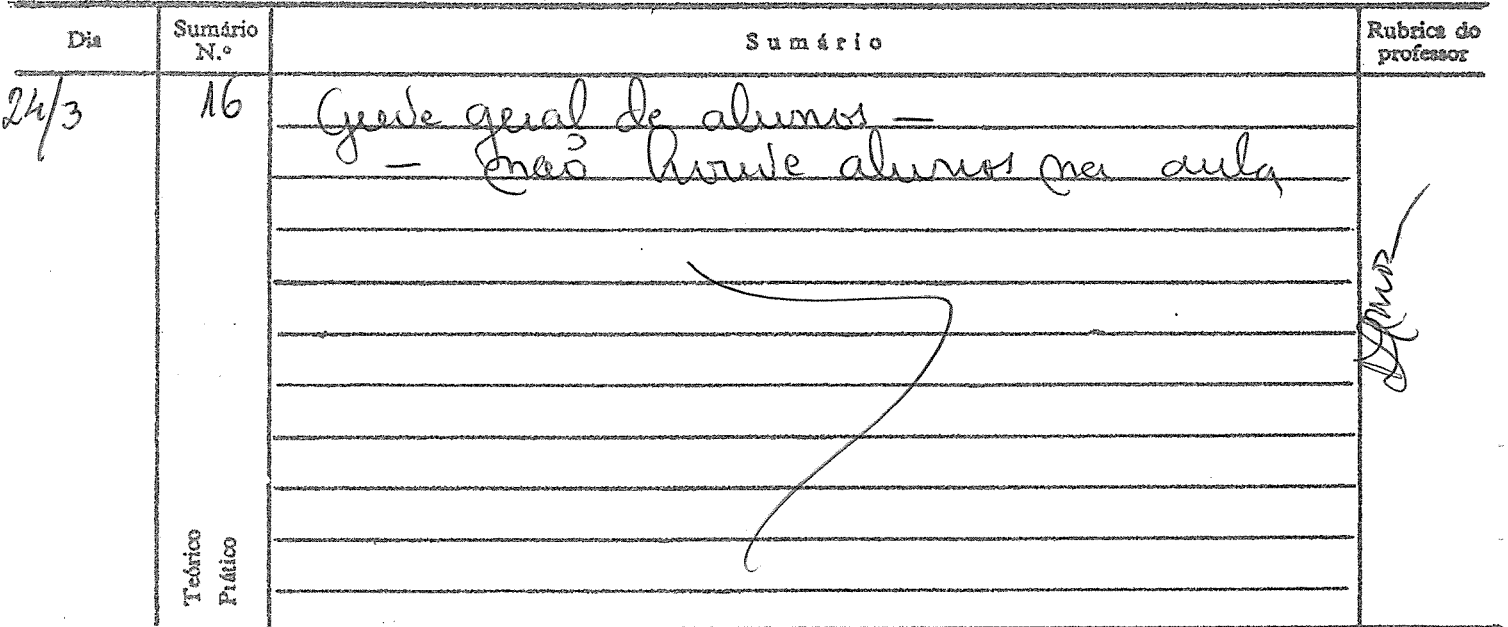 Dia
Sumário N.º
Sumário
Rubrica do professor
24/3
16
Greve geral de alunos —
— não houve alunos na aula
Teórico
Prático